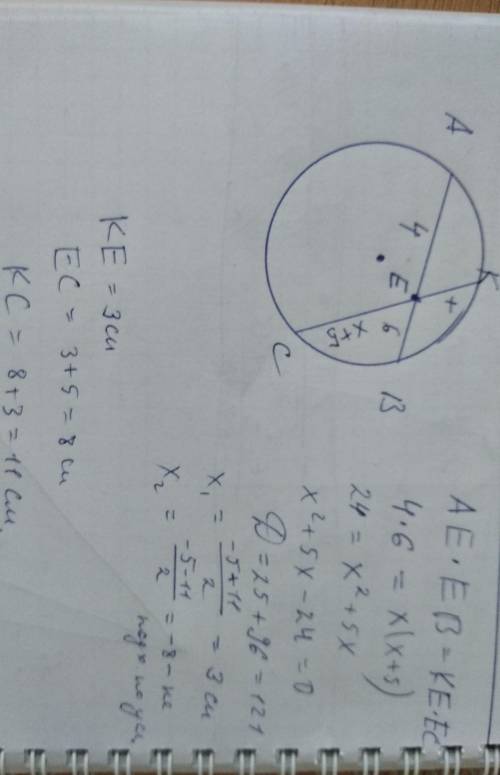 A
4
K
E
x
6
x+5
B
C
AE·EB=KE·EC
4·6 = x(x+5)
24 = x²+5x
x²+5x-24=0
D=25+96=121
x₁ = (-5+11)/2 = 3 см
x₂ = (-5-11)/2 = -8 - не
KE = 3 см
EC = 3+5 = 8 см
KC = 8+3 = 11 см.